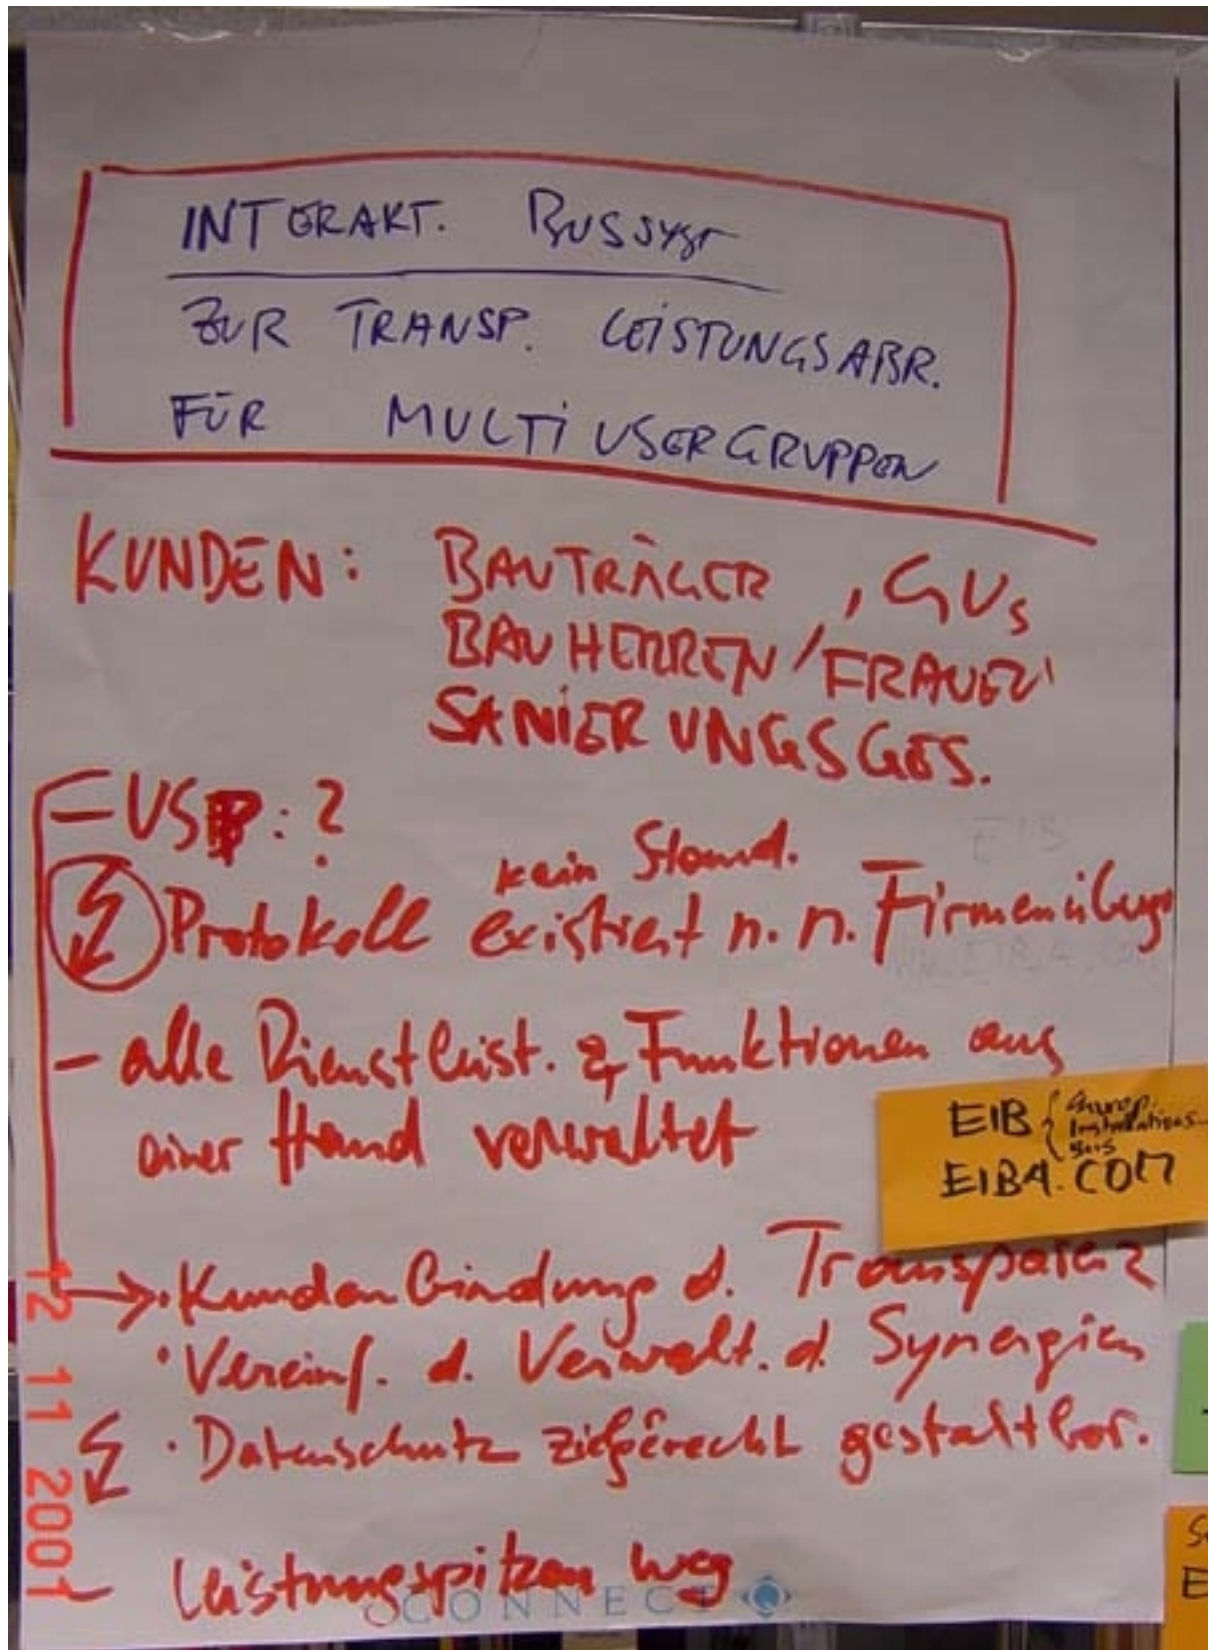 INTERAKT. BUSSYST
ZUR TRANSP. LEISTUNGSABR.
FÜR MULTIUSERGRUPPEN
KUNDEN: BAUTRÄGER, GUs
BAUHERREN/FRAUEN
SANIERUNGSGES.
– USP: ?
kein Stand.
Protokoll existiert n. n. Firmenüberg
– alle Dienstleist. & Funktionen aus
einer Hand verwaltet
EIB { Europ. Installations... Bus
EIBA.COM
→ • Kundenbindung d. Transparenz
• Vereinf. d. Verwalt. d. Synergien
• Datenschutz zielgerecht gestaltbar.
– Leistungspitzen weg
CONNECT
12 11 2001